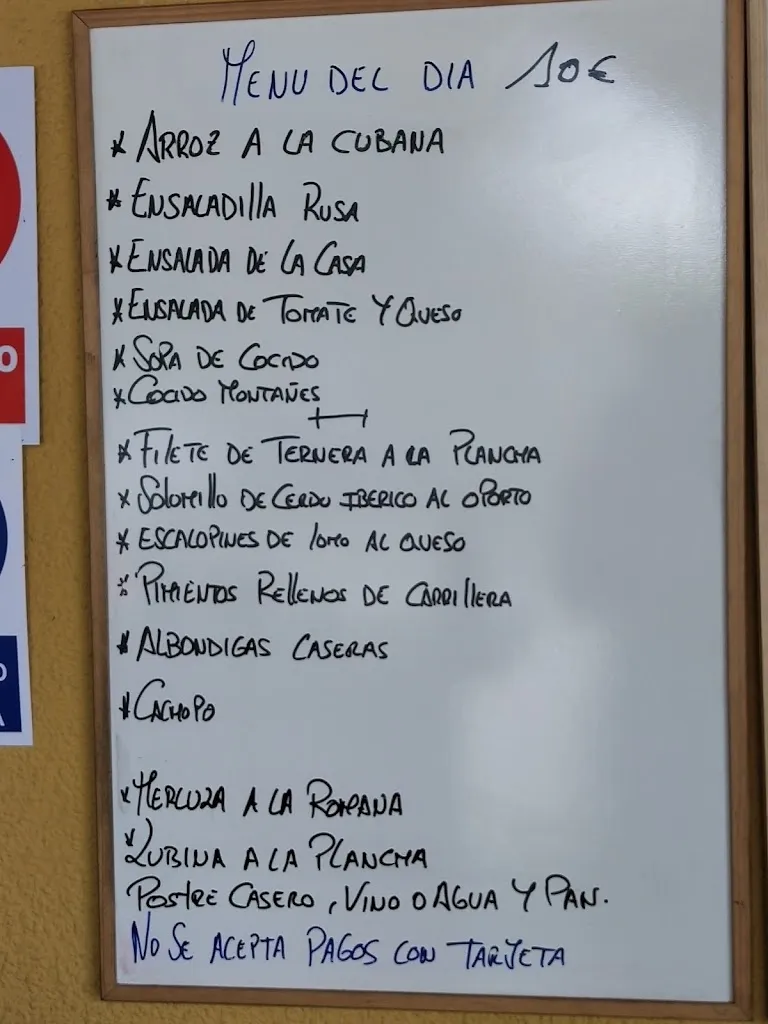 MENU DEL DIA 10€
* ARROZ A LA CUBANA
* ENSALADIllA RUSA
* ENSALADA DE LA CASA
* ENSALADA DE TOMATE Y QUESO
* SOPA DE COCIDO
* COCIDO MONTAÑES
* FILETE DE TERNERA A LA PLANCHA
* SOLOMILLO DE CERDO IBERICO AL OPORTO
* ESCALOPINES DE lOMO AL QUESO
* PIMIENTOS RELLENOS DE CARRILLERA
* ALBONDIGAS CASERAS
* CACHOPO
* MERLUZA A LA ROMANA
* LUBINA A LA PLANCHA
POSTRE CASERO, VINO O AGUA Y PAN.
NO SE ACEPTA PAGOS CON TARJETA
O
O
A